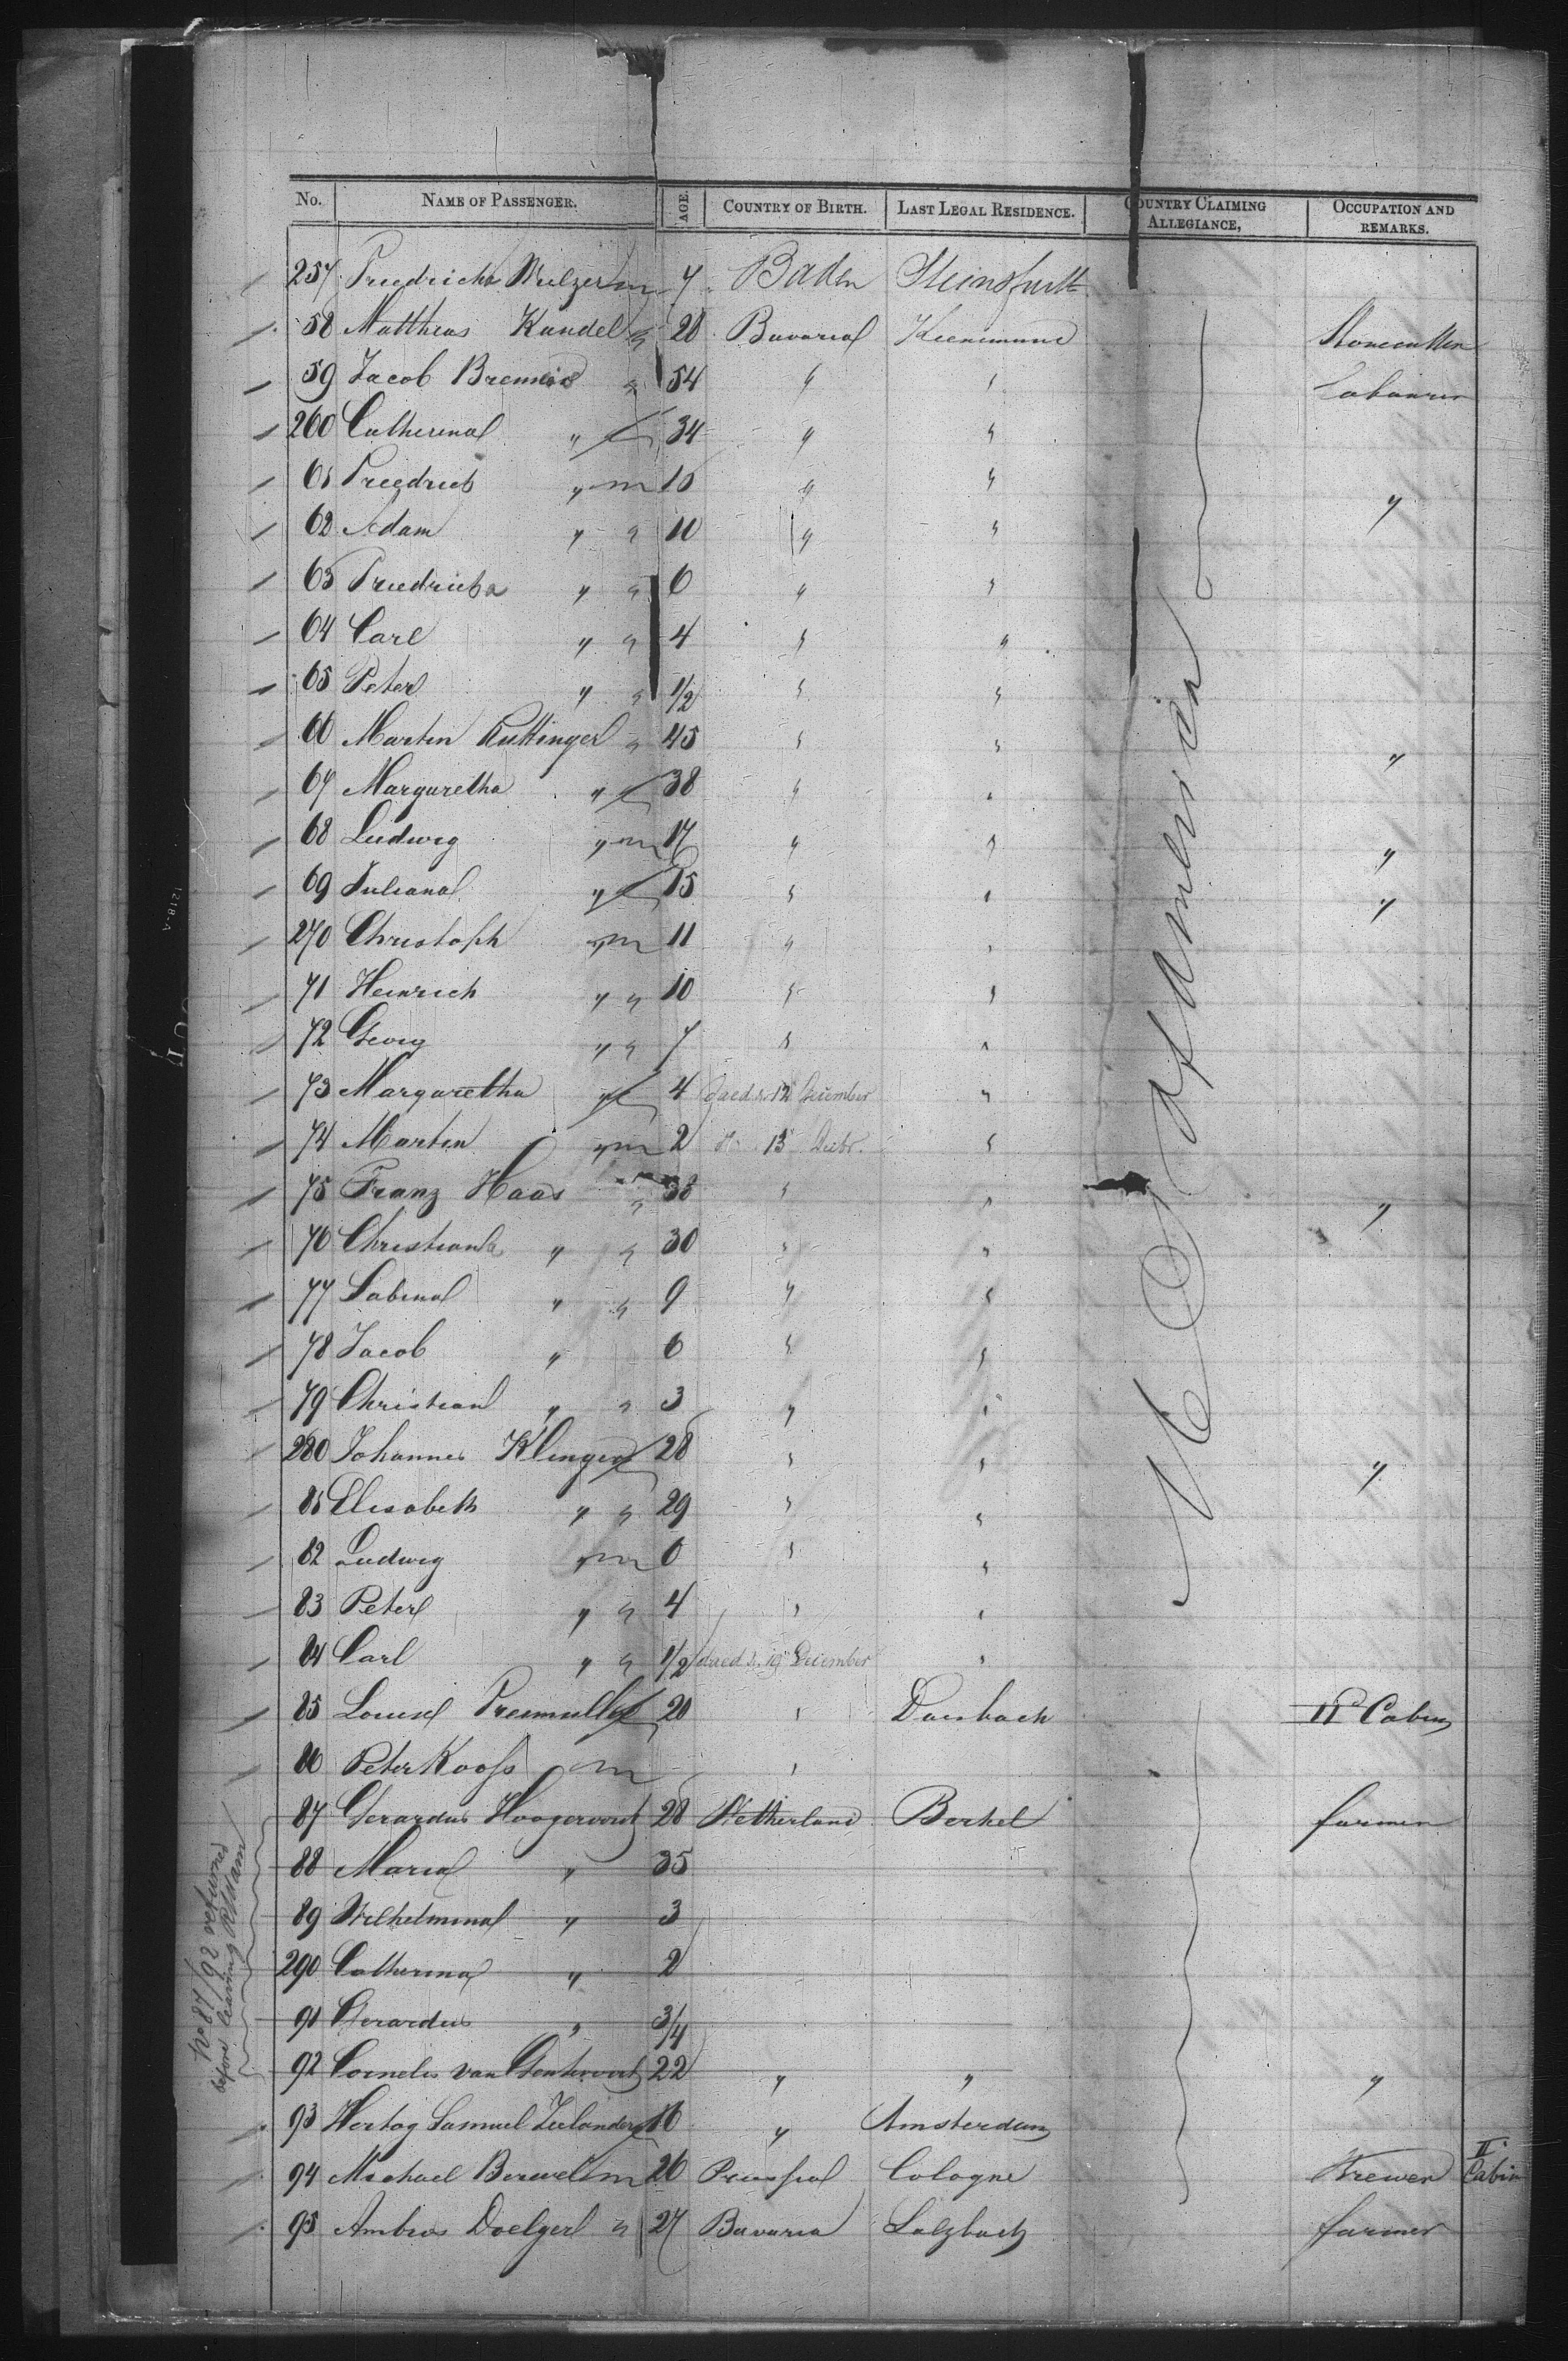 No. NAME OF PASSENGER. AGE. COUNTRY OF BIRTH. LAST LEGAL RESIDENCE. COUNTRY CLAIMING ALLEGIANCE, OCCUPATION AND REMARKS.
257 Friedricke Welzer m 7 Baden Steinsfurth
58 Matthias Kundel " 28 Bavaria Stonecutter
59 Jacob " 54 " " Labourer
260 Catherina " f 34 " "
61 Friedrich " m 15 " " "
62 Adam " " 10 " "
63 Friedricka " " 6 " "
64 Carl " " 4 " "
65 Peter " " 1/2 " "
66 Martin Ruttinger " 45 " " "
67 Margaretha " f 38 " "
68 Ludwig " m 17 " " "
69 Juliana " f 15 " " "
270 Christoph " m 11 " "
71 Heinrich " " 10 " "
72 Georg " " 7 " "
73 Margaretha " f 4 12 December "
74 Martin " m 2 13 Decbr. "
75 Franz Haas " 38 " " "
76 Christiana " " 30 " "
77 Sabina " " 9 " "
78 Jacob " 6 " "
79 Christian " " 3 " "
280 Johannes Klinger f 28 " " "
81 Elisabeth " " 29 " "
82 Ludwig " m 6 " "
83 Peter " " 4 " "
84 Carl " " 1/2 19 December "
85 Louise f 20 " Dansbach II Cabin
86 Peter Koofs m "
87 Gerardus Hoogervorst 28 Netherland Berkel farmer
88 Maria " 35
89 Wilhelmina " 3
290 Catherina " 2
91 Gerardus " 3/4
92 Cornelis van 22 " " "
93 Hertog Samuel Zeelander 16 " Amsterdam
94 Michael m 26 Prussia Cologne Brewer II Cabin
95 Ambros Doelger " 27 Bavaria Sulzbach farmer
N. O. of America
No 87/92 returned
before leaving R'dam
1218-A